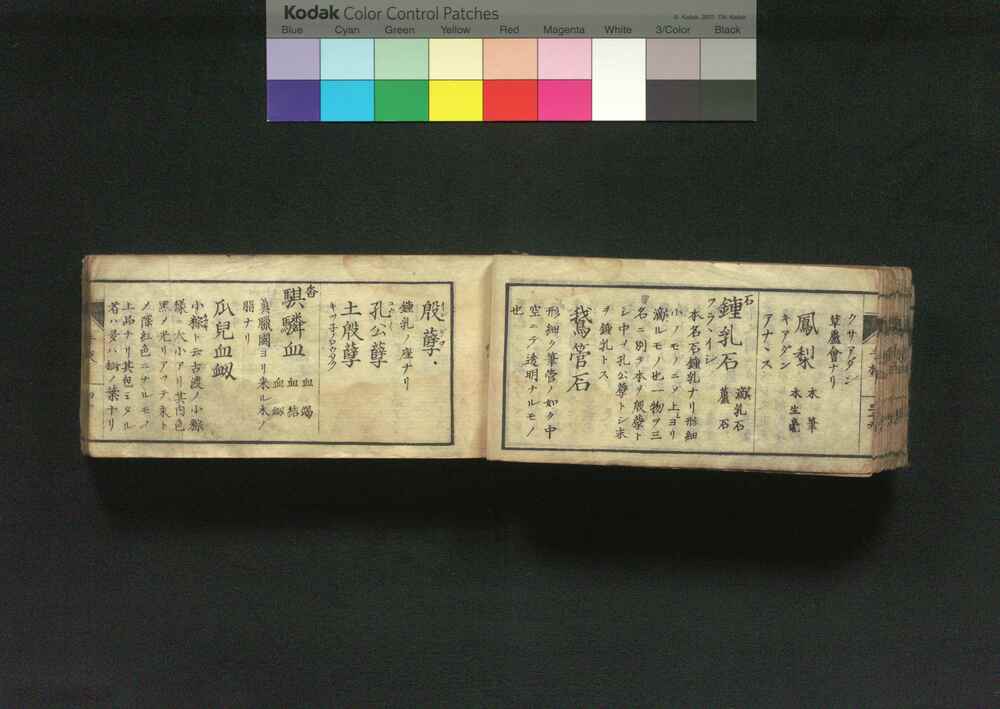 Kodak Color Control Patches
© Kodak, 2007, TM: Kodak
Blue Cyan Green Yellow Red Magenta White 3/Color Black
クサアダン
草蘆會ナリ
鳳梨 木筆 木生毫
キアダン
アナヽス
石
鍾乳石 滴乳石 蘆石
フラヽイシ
本名石鍾乳ナリ形細
小ノモノニメ上ヨリ
滴ルモノ也一物ヲ三
名ニ別ツ本ヲ殷孽ト
シ中ヲ孔公孽トシ末
ヲ鍾乳トス
鵞管石
形細ク筆管ノ如ク中
空ニテ透明ナルモノ
也
殷孽
鍾乳ノ座ナリ
孔公孽
土殷孽
杏
騏驎血 血竭 血結
眞臘國ヨリ来ル木ノ
脂ナリ
爪兒血
小䑓ト云古渡ノ小䑓
様ノ大小アリ其肉色
黒メ光リアツテ末ト
メ深紅色ニナルモノ
上品ナリ其包ミタル
者ハ是ハ樹ノ葉ナリ